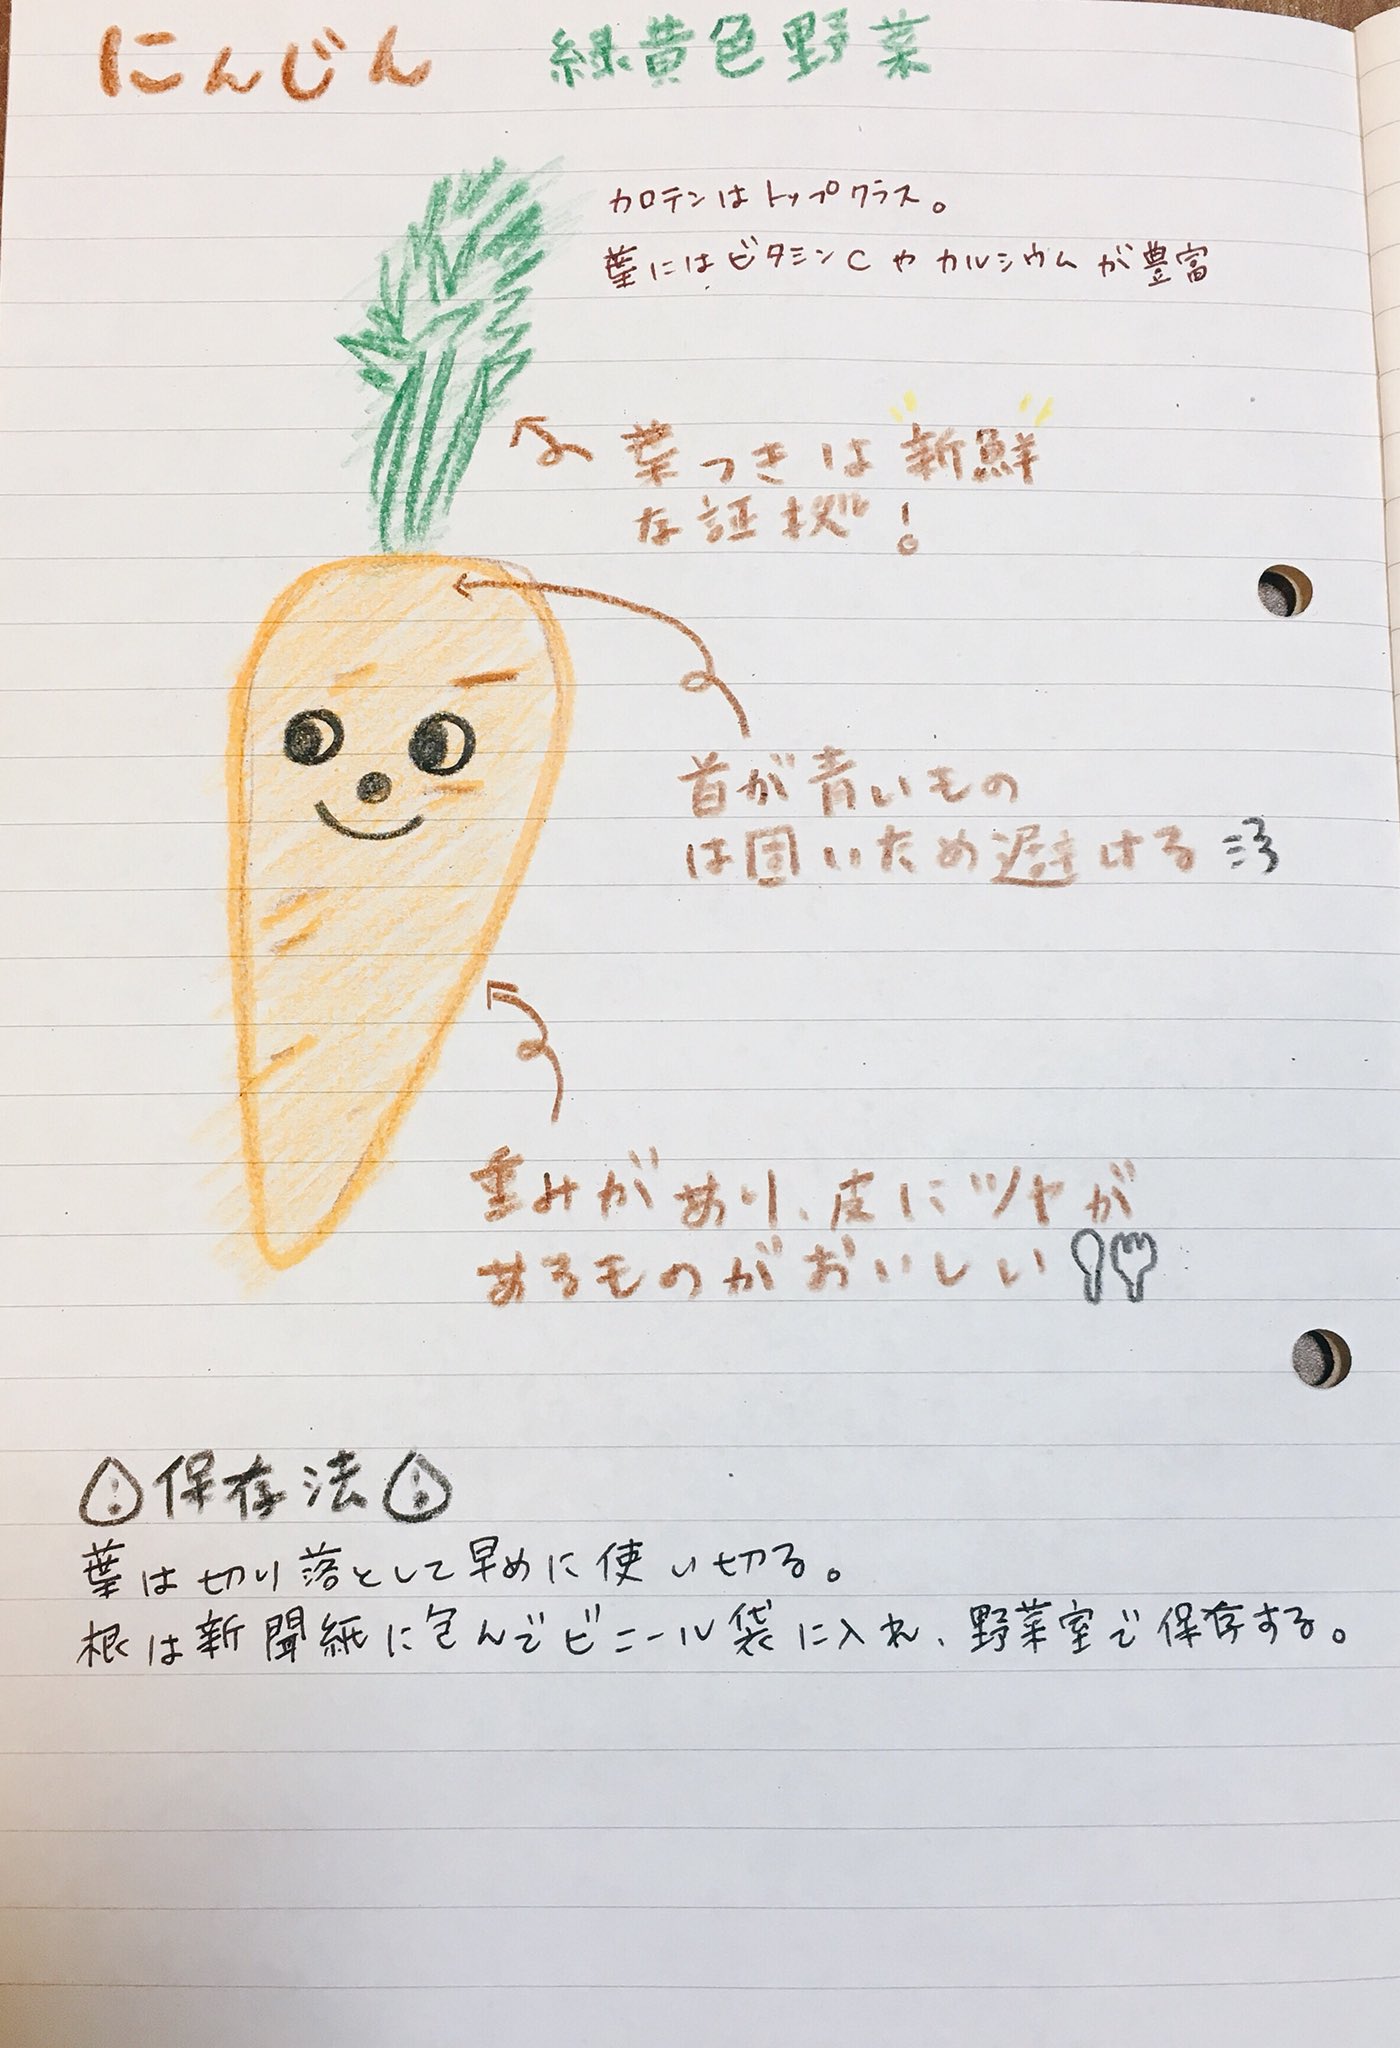 にんじん 緑黄色野菜
カロテンはトップクラス。
葉にはビタミンCやカルシウムが豊富
葉つきは新鮮
な証拠!
首が青いもの
は固いため避ける
重みがあり、皮にツヤが
あるものがおいしい
保存法
葉は切り落として早めに使い切る。
根は新聞紙に包んでビニール袋に入れ、野菜室で保存する。